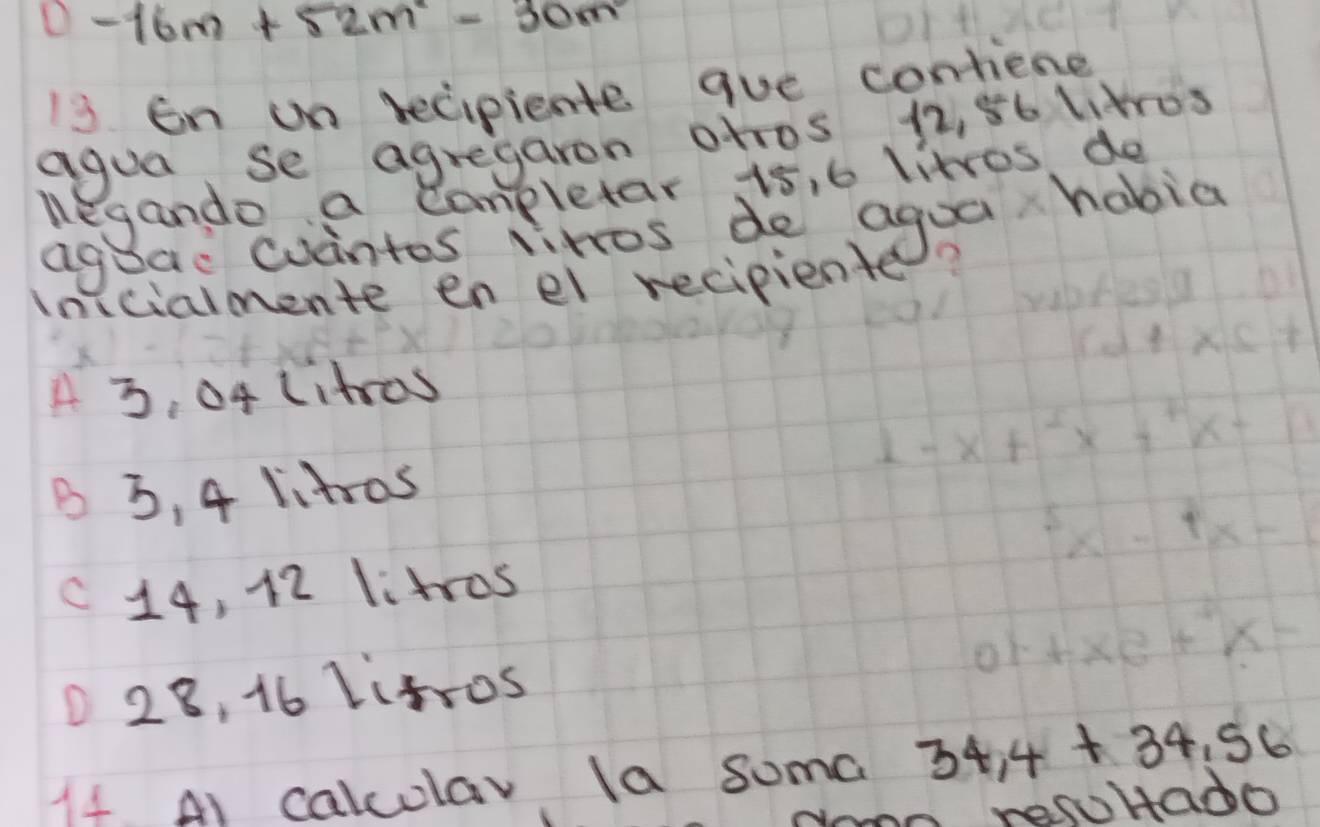 D -16m + 52m² - 30m
13. En un recipiente que contiene
agua se agregaron otros 12,56 litros
llegando a completar 15,6 litros de
agua ¿ cuántos litros de agua habia
inicialmente en el recipiente?
A 3,04 litros
B 3,4 litros
C 14,12 litros
D 28,16 litros
14 Al calcular la suma 34,4 + 34,56
resultado